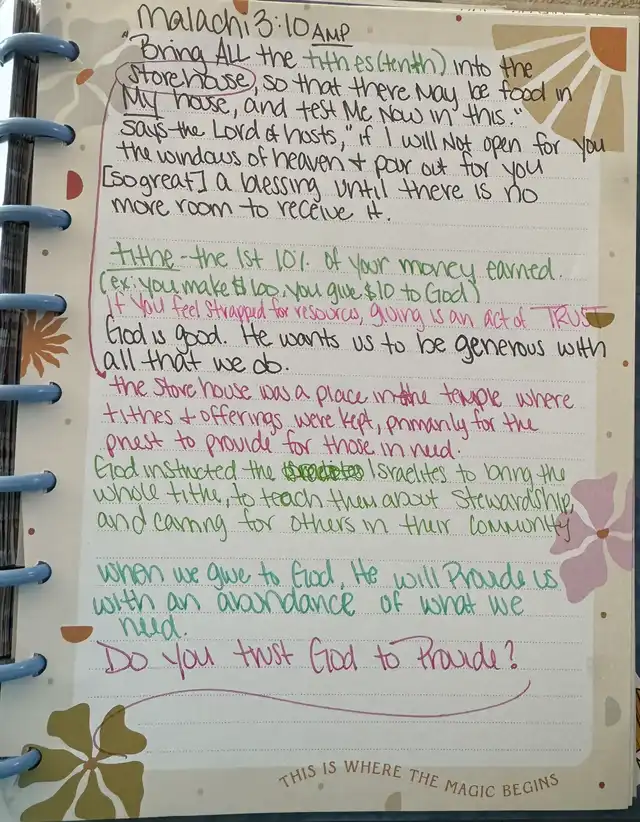 Malachi 3:10 AMP
"Bring ALL the tithes (tenth) into the
storehouse, so that there May be food in
My house, and test Me Now in this."
says the Lord of hosts, "if I will Not open for you
the windows of heaven + pour out for you
[so great] a blessing until there is no
more room to receive it.
tithe - the 1st 10% of your money earned.
(ex: you make $100, you give $10 to God)
If you feel strapped for resources, giving is an act of TRUST
God is good. He wants us to be generous with
all that we do.
the store house was a place in the temple where
tithes + offerings were kept, primarily for the
priest to provide for those in need.
God instructed the Israelites to bring the
whole tithe, to teach them about Stewardship,
and carring for others in their community
when we give to God, He will Provide us
with an abundance of what we
need.
Do you trust God to Provide?
THIS IS WHERE THE MAGIC BEGINS